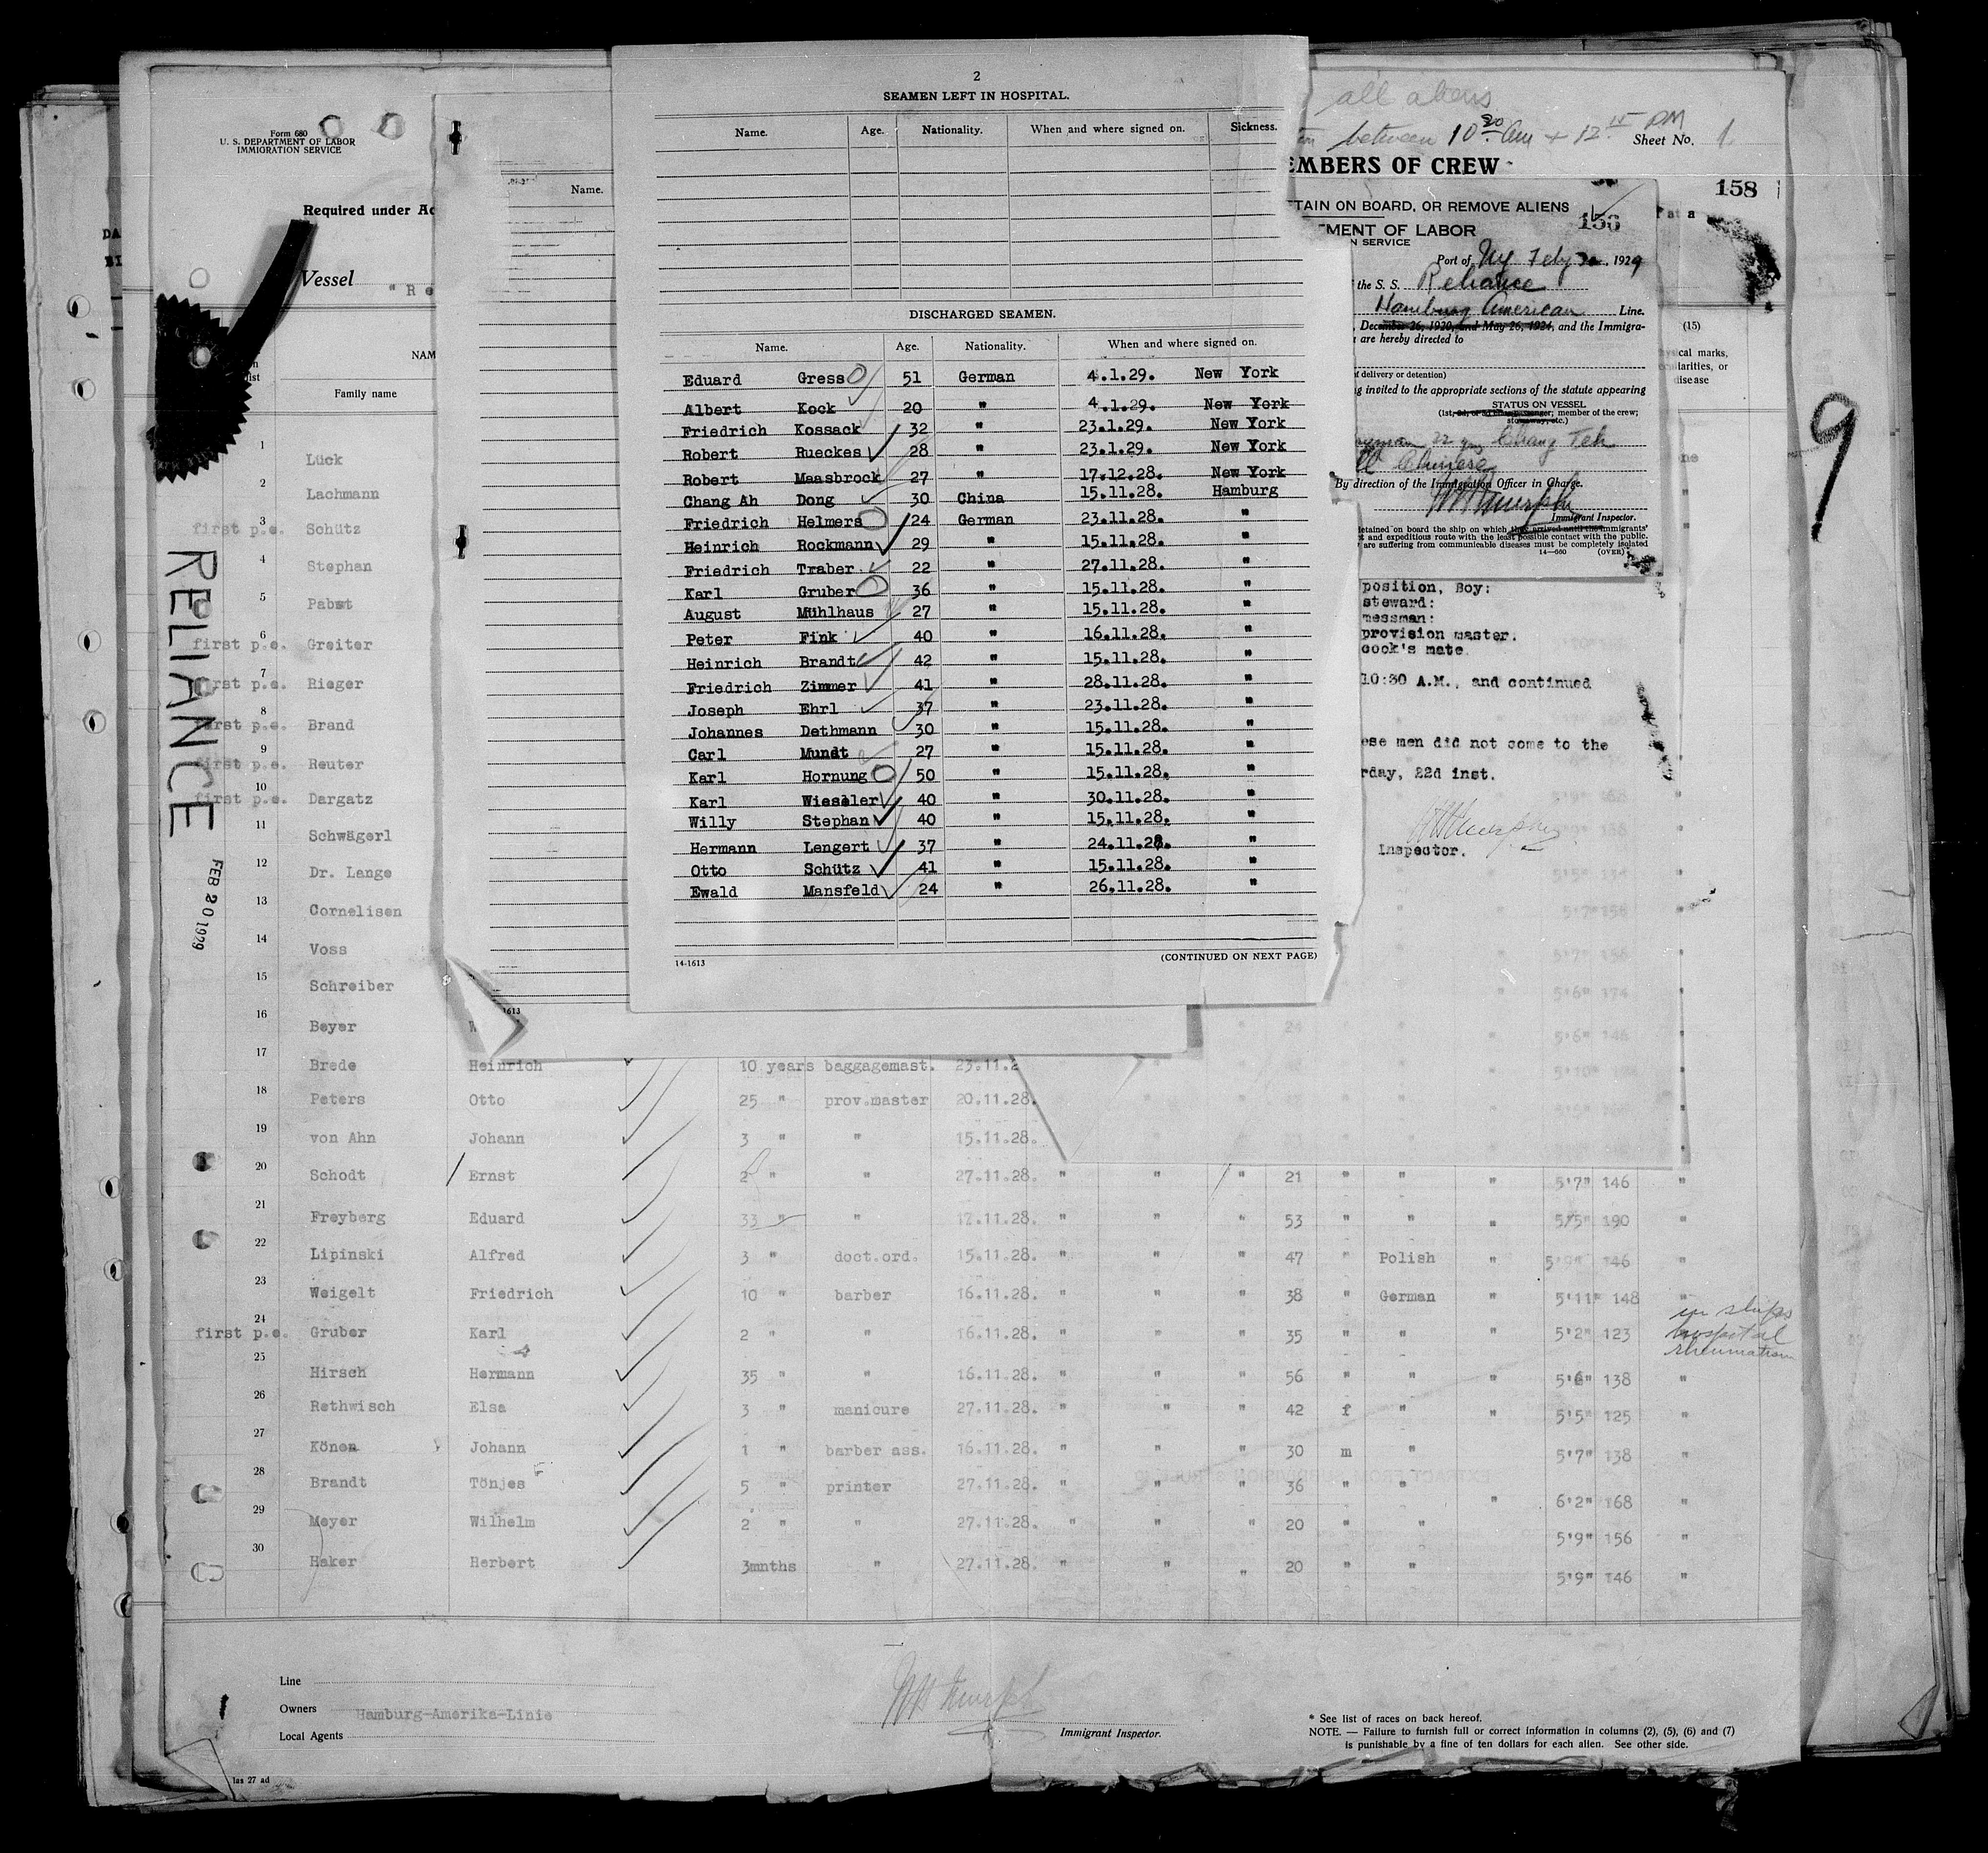 2
SEAMEN LEFT IN HOSPITAL.
Name. Age. Nationality. When and where signed on. Sickness.
DISCHARGED SEAMEN.
Name. Age. Nationality. When and where signed on.
Eduard Gress 51 German 4.1.29. New York
Albert Kock 20 " 4.1.29. New York
Friedrich Kossack 32 " 23.1.29. New York
Robert Rueckes 28 " 23.1.29. New York
Robert Maasbrock 27 " 17.12.28. New York
Chang Ah Dong 30 China 15.11.28. Hamburg
Friedrich Helmers 24 German 23.11.28. "
Heinrich Rockmann 29 " 15.11.28. "
Friedrich Traber 22 " 27.11.28. "
Karl Gruber 36 " 15.11.28. "
August Mühlhaus 27 " 15.11.28. "
Peter Fink 40 " 16.11.28. "
Heinrich Brandt 42 " 15.11.28. "
Friedrich Zimmer 41 " 28.11.28. "
Joseph Ehrl 37 " 23.11.28. "
Johannes Dethmann 30 " 15.11.28. "
Carl Mundt 27 " 15.11.28. "
Karl Hornung 50 " 15.11.28. "
Karl Wieseler 40 " 30.11.28. "
Willy Stephan 40 " 15.11.28. "
Hermann Lengert 37 " 24.11.28. "
Otto Schütz 41 " 15.11.28. "
Ewald Mansfeld 24 " 26.11.28. "
14-1613 (CONTINUED ON NEXT PAGE)
Name.
1613
Form 680
U. S. DEPARTMENT OF LABOR
IMMIGRATION SERVICE
Required under Ac
Vessel "Re
NAM
Family name
RELIANCE
FEB 20 1929
all aliens
between 10 30 am + 12 15 PM
Sheet No. 1
EMBERS OF CREW
158
TAIN ON BOARD, OR REMOVE ALIENS
156
TMENT OF LABOR
N SERVICE
Port of NY Feby 20, 1929
the S. S. Reliance
Hamburg American Line.
, December 26, 1920, and May 26, 1924, and the Immigra-
are hereby directed to
t delivery or detention)
g invited to the appropriate sections of the statute appearing
STATUS ON VESSEL
member of the crew;
stowaway, etc.)
22 Chang Teh
Chinese
By direction of the Immigration Officer in Charge.
Immigrant Inspector.
detained on board the ship on which they arrived until the immigrants'
t and expeditious route with the least possible contact with the public.
are suffering from communicable diseases must be completely isolated
14-660 (OVER)
(15)
ysical marks,
culiarities, or
disease
9
position, Boy:
steward:
messman:
provision master.
cook's mate.
10:30 A.M., and continued
ese men did not come to the
rday, 22d inst.
Inspector.
1 Lück
2 Lachmann
first p.e. 3 Schütz
4 Stephan
5 Pabst
first p.e. 6 Greiter
first p.e. 7 Rieger
first p.e. 8 Brand
first p.e. 9 Reuter
first p.e. 10 Dargatz
11 Schwägerl
12 Dr. Lange
13 Cornelisen
14 Voss
15 Schreiber
16 Beyer
17 Brede Heinrich 10 years baggagemast. 23.11.2
18 Peters Otto 25 " prov.master 20.11.28.
19 von Ahn Johann 3 " " 15.11.28.
20 Schodt Ernst 2 " " 27.11.28. " " " 21 " " " 5'7" 146 "
21 Freyberg Eduard 33 " " 17.11.28. " " " 53 " " " 5'5" 190
22 Lipinski Alfred 3 " doct.ord. 15.11.28. " " " 47 " Polish " 5'9" 146 "
23 Weigelt Friedrich 10 " barber 16.11.28. " " " 38 " German " 5'11" 148 "
first p.e. 24 Gruber Karl 2 " " 16.11.28. " " " 35 " " " 5'2" 123 in ships hospital rheumatism
25 Hirsch Hermann 35 " " 16.11.28. " " " 56 " " " 5'6" 138 "
26 Rethwisch Elsa 3 " manicure 27.11.28. " " " 42 f " " 5'5" 125 "
27 Könen Johann 1 " barber ass. 16.11.28. " " " 30 m " 5'7" 138 "
28 Brandt Tönjes 5 " printer 27.11.28. " " " 36 " " " 6'2" 168 "
29 Meyer Wilhelm 2 " " 27.11.28. " " " 20 " " 5'9" 156 "
30 Haker Herbert 3mnths " 27.11.28. " " " 20 " " 5'9" 146 "
Line
Owners Hamburg-Amerika-Linie
Local Agents
Immigrant Inspector.
* See list of races on back hereof.
NOTE. — Failure to furnish full or correct information in columns (2), (5), (6) and (7)
is punishable by a fine of ten dollars for each alien. See other side.